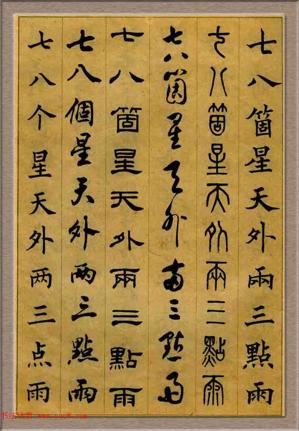 七八箇星天外兩三點雨
七八箇星天外兩三點雨
七八箇星天外兩三點雨
七八箇星天外兩三點雨
七八個星天外兩三點雨
七八个星天外两三点雨